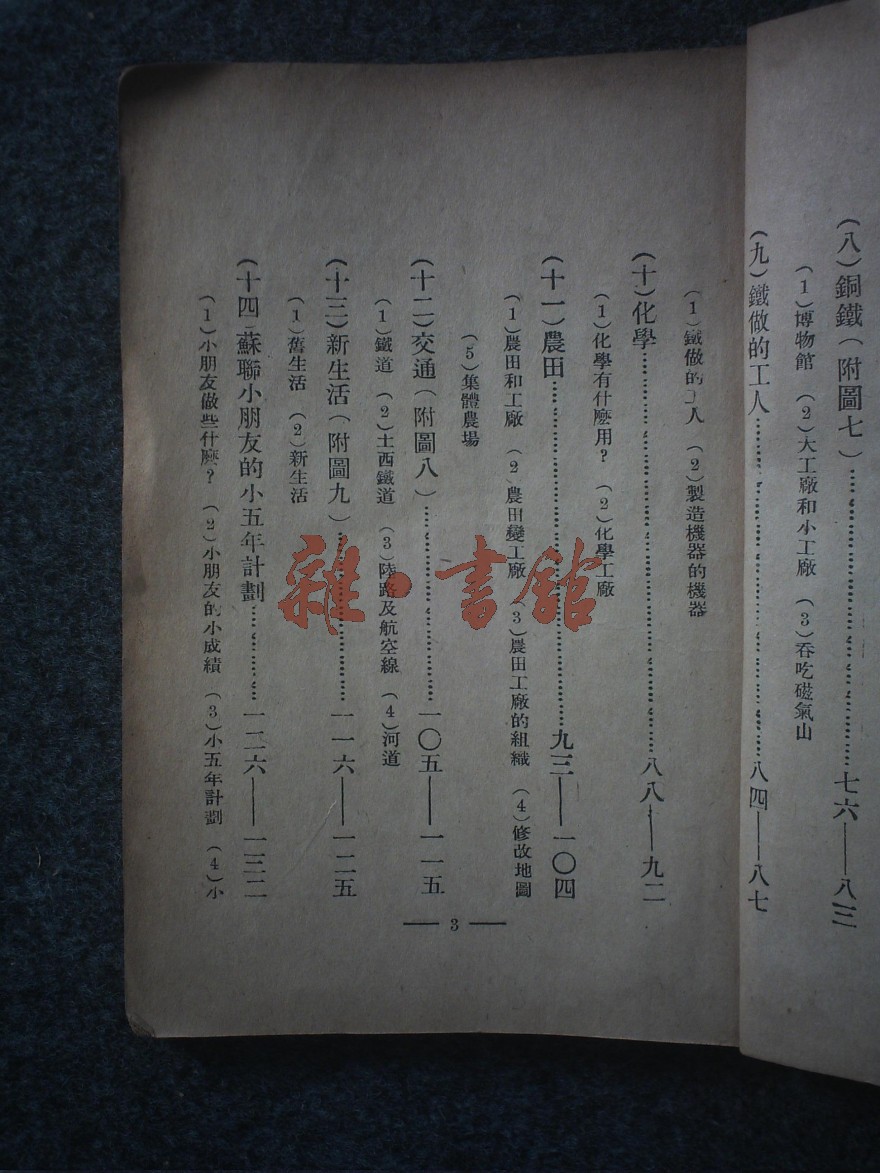 (八)銅鐵(附圖七)……………………七六——八三
(1)博物館 (2)大工廠和小工廠 (3)吞吃磁氣山
(九)鐵做的工人……………………八四——八七
(1)鐵做的工人 (2)製造機器的機器
(十)化學……………………八八——九二
(1)化學有什麼用? (2)化學工廠
(十一)農田……………………九三——一〇四
(1)農田和工廠 (2)農田變工廠 (3)農田工廠的組織 (4)修改地圖
(5)集體農場
(十二)交通(附圖八)……………………一〇五——一一五
(1)鐵道 (2)土西鐵道 (3)陸路及航空線 (4)河道
(十三)新生活(附圖九)……………………一一六——一二五
(1)舊生活 (2)新生活
(十四)蘇聯小朋友的小五年計劃……………………一二六——一三二
(1)小朋友做些什麼? (2)小朋友的小成績 (3)小五年計劃 (4)小
—— 3 ——
雜·書館